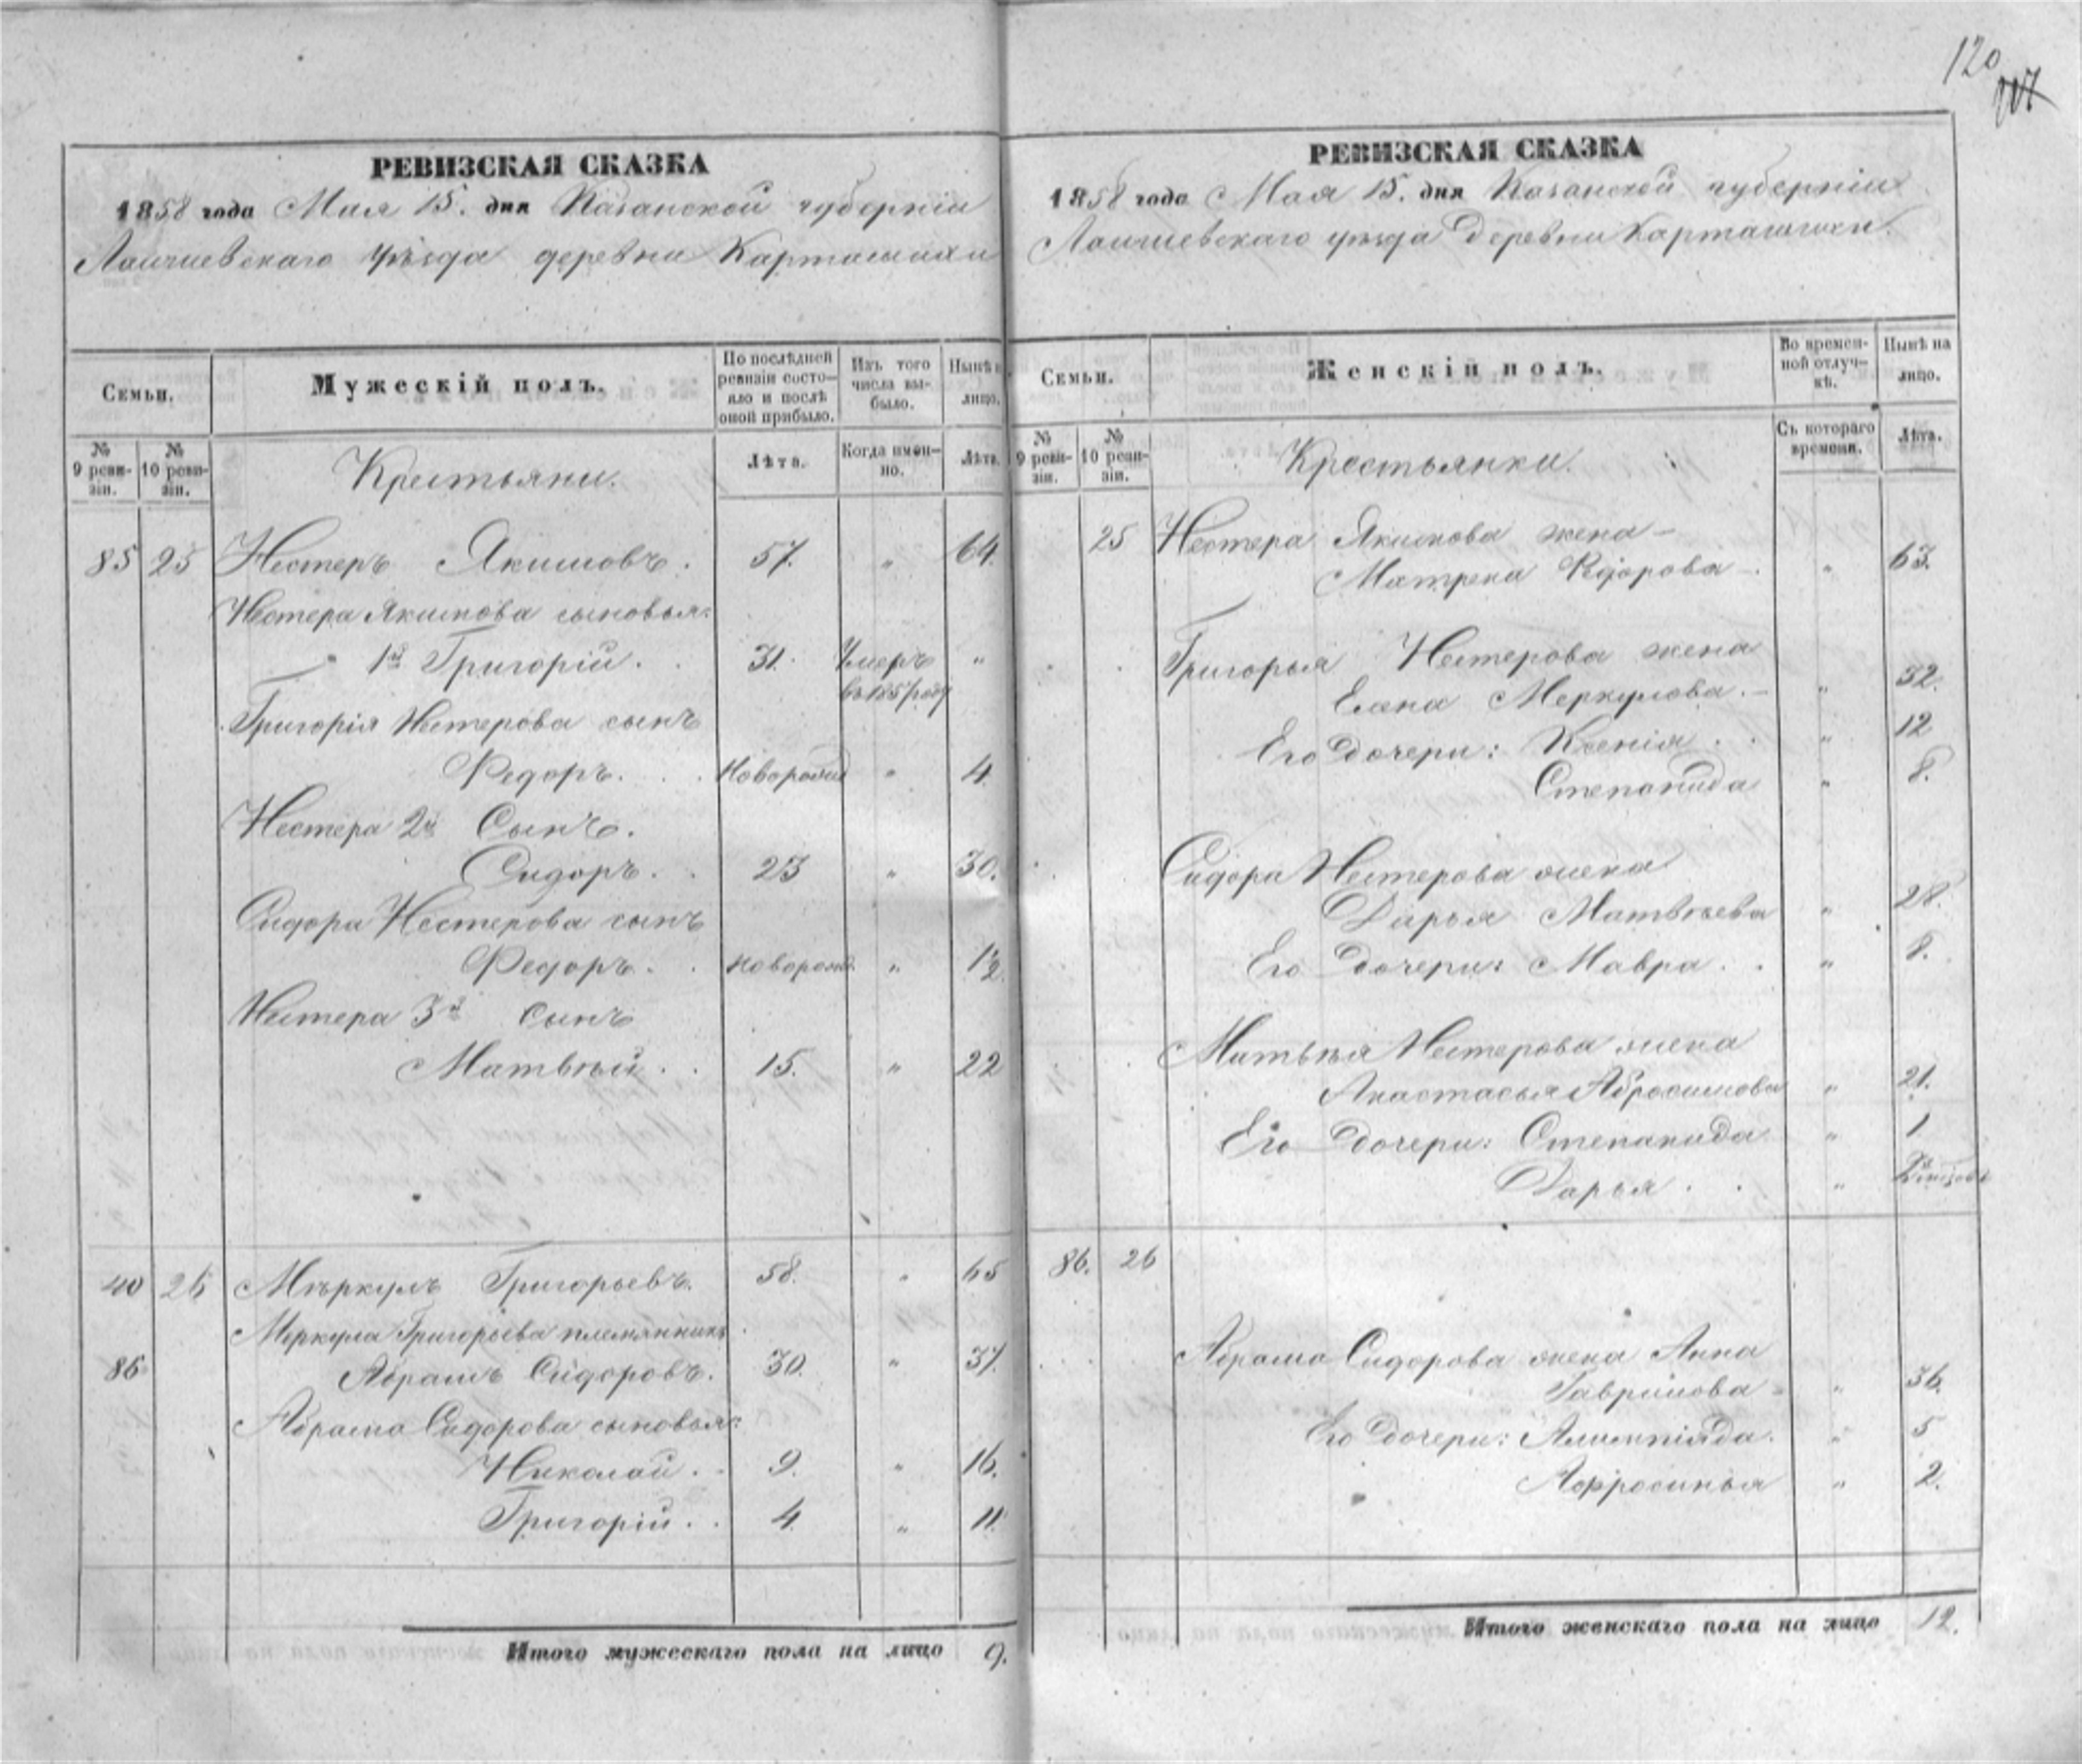 120
117
РЕВИЗСКАЯ СКАЗКА
1858 года Мая 15. дня Казанской губерніи
Лаишевскаго уѣзда деревни Карташихи
Семьи.
Мужескій полъ.
По послѣдней ревизіи состояло и послѣ оной прибыло.
Изъ того числа выбыло.
Нынѣ на лицо.
№ 9 ревизіи.
№ 10 ревизіи.
Крестьяни.
Лѣта.
Когда именно.
Лѣта.
85 25 Нестеръ Якимовъ. 57. " 64.
Нестера Якимова сыновья:
1й Григорій. 31. Умеръ "
въ 1857 году
Григорія Нестерова сынъ
Федоръ. Новорожд " 4.
Нестера 2й Сынъ.
Сидоръ. 23 " 30.
Сидора Нестерова сынъ
Федоръ. новорожд. " 1/2
Нестера 3й сынъ
Матвѣй. 15. " 22
40 26 Мѣркулъ Григорьевъ. 58. " 65
Меркула Григорьева племянникъ
86 Абрамъ Сидоровъ. 30. " 37.
Абрама Сидорова сыновья:
Николай. 9. " 16.
Григорій. 4. " 11.
Итого мужескаго пола на лицо 9.
РЕВИЗСКАЯ СКАЗКА
1858 года Мая 15. дня Казанской губерніи
Лаишевскаго уѣзда Деревни Карташихи.
Семьи.
Женскій полъ.
Во временной отлучкѣ.
Нынѣ на лицо.
№ 9 ревизіи.
№ 10 ревизіи.
Крестьянки.
Съ котораго времени.
Лѣта.
25 Нестера Якимова жена
Матрена Федорова " 63.
Григорья Нестерова жена
Елена Меркулова. " 32.
Его дочери: Ксенія " 12
Степанида " 8.
Сидора Нестерова жена
Дарья Матвѣева " 28.
Его дочери: Мавра " 8.
Матвѣя Нестерова жена
Анастасья Абросимова " 21.
Его дочери: Степанида " 1
Дарья "
86. 26
Абрама Сидорова жена Анна
Гаврилова " 36.
Его дочери: Алимпіяда. " 5
Афросинья " 2.
Итого женскаго пола на лицо 12.